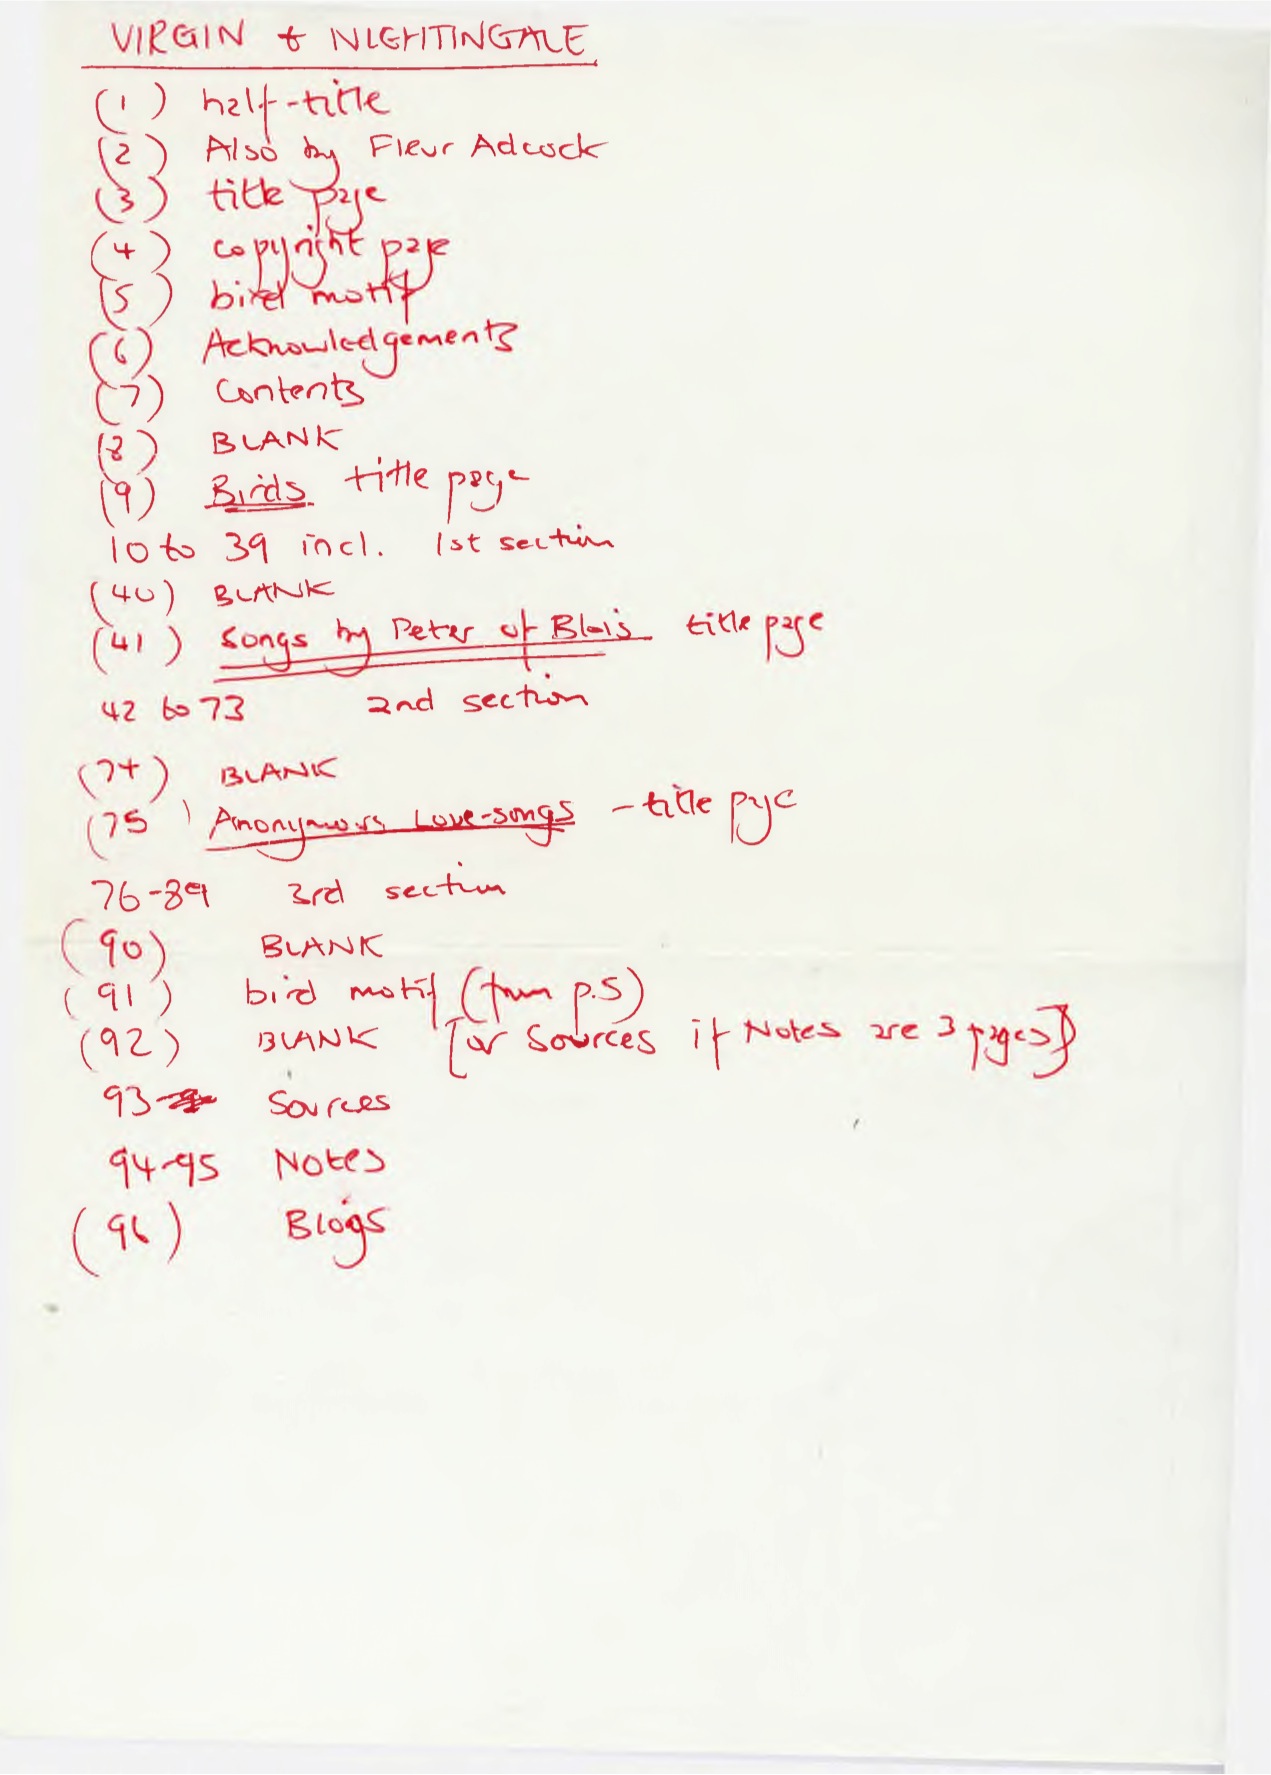 VIRGIN & NIGHTINGALE
(1) half-title
(2) Also by Fleur Adcock
(3) title page
(4) copyright page
(5) bird motif
(6) Acknowledgements
(7) Contents
(8) BLANK
(9) Birds title page
10 to 39 incl. 1st section
(40) BLANK
(41) Songs by Peter of Blois title page
42 to 73 2nd section
(74) BLANK
(75) Anonymous Love-songs - title page
76-89 3rd section
(90) BLANK
(91) bird motif (from p.5)
(92) BLANK [or Sources if Notes are 3 pages]
93 Sources
94-95 Notes
(96) Blogs